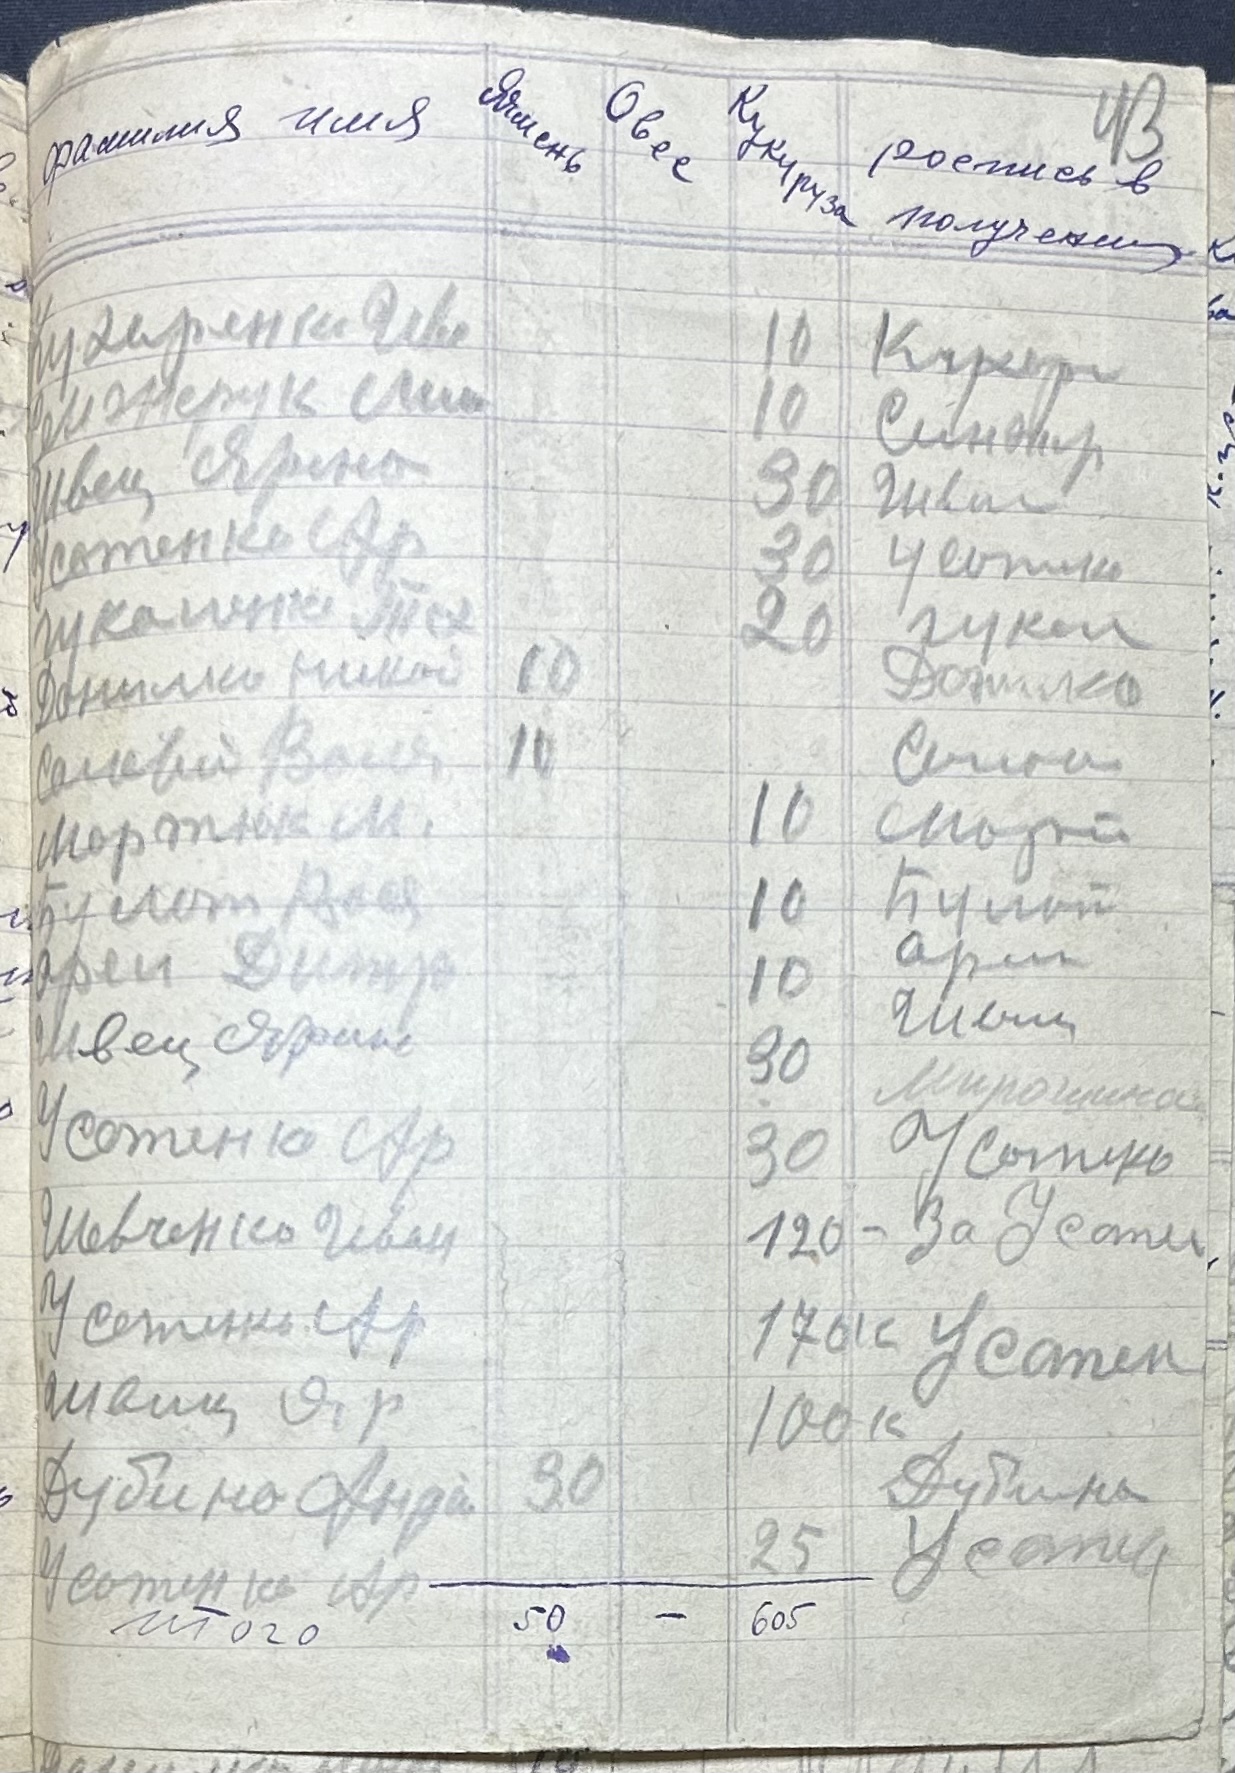 43
фамилия имя Ячмень Овес Кукуруза роспись в получении
Кухаренко Ива 10 Кухар
10
Швец Ярина 30 Швец
Усатенко Ар 30 Усатко
Гукаленко 20 Гукал
Данилко Никол 10 Данилко
Соловей Вася 10
Мартюк М. 10
Булат Вася 10 Булат
Арей Дмитр 10 Арей
Швец Ярина 30 Швец
Мирошник
Усатенко Ар 30 Усатко
Шевченко Иван 120 - За Усатен
Усатенко Ар 170 к Усатен
Швец Яр 100 к
Дубина Андр 30 Дубина
Усатенко Ар 25 Усатен
Итого 50 - 605